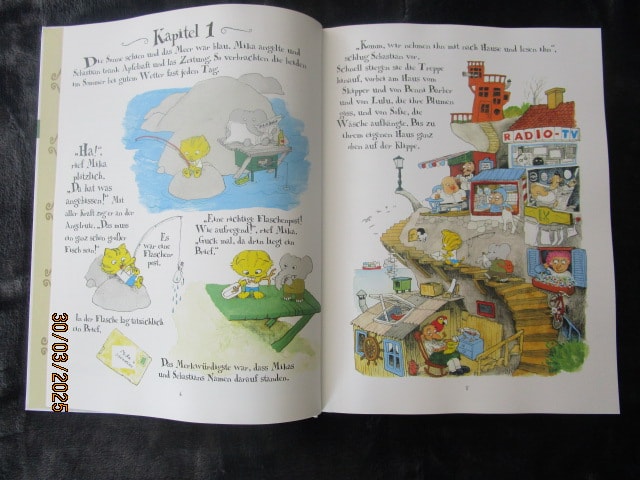 Kapitel 1
Die Sonne schien und das Meer war blau. Mika angelte und
Sebastian trank Apfelsaft und las Zeitung. So verbrachten die beiden
im Sommer bei gutem Wetter fast jeden Tag.
„Ha!“,
rief Mika
plötzlich.
„Da hat was
angebissen!“ Mit
aller Kraft zog er an der
Angelrute. „Das muss
ein ganz schön großer
Fisch sein!“
Es
war eine
Flaschen-
post.
„Eine richtige Flaschenpost!
Wie aufregend!“, rief Mika.
„Guck mal, da drin liegt ein
Brief.“
In der Flasche lag tatsächlich
ein Brief.
Das Merkwürdigste war, dass Mikas
und Sebastians Namen darauf standen.
„Komm, wir nehmen ihn mit nach Hause und lesen ihn“,
schlug Sebastian vor.
Schnell stiegen sie die Treppe
hinauf, vorbei am Haus von
Skipper und von Benni Barker
und von Lulu, die ihre Blumen
goss, und von Sofie, die
Wäsche aufhängte. Bis zu
ihrem eigenen Haus ganz
oben auf der Klippe.
RADIO-TV
30/03/2025